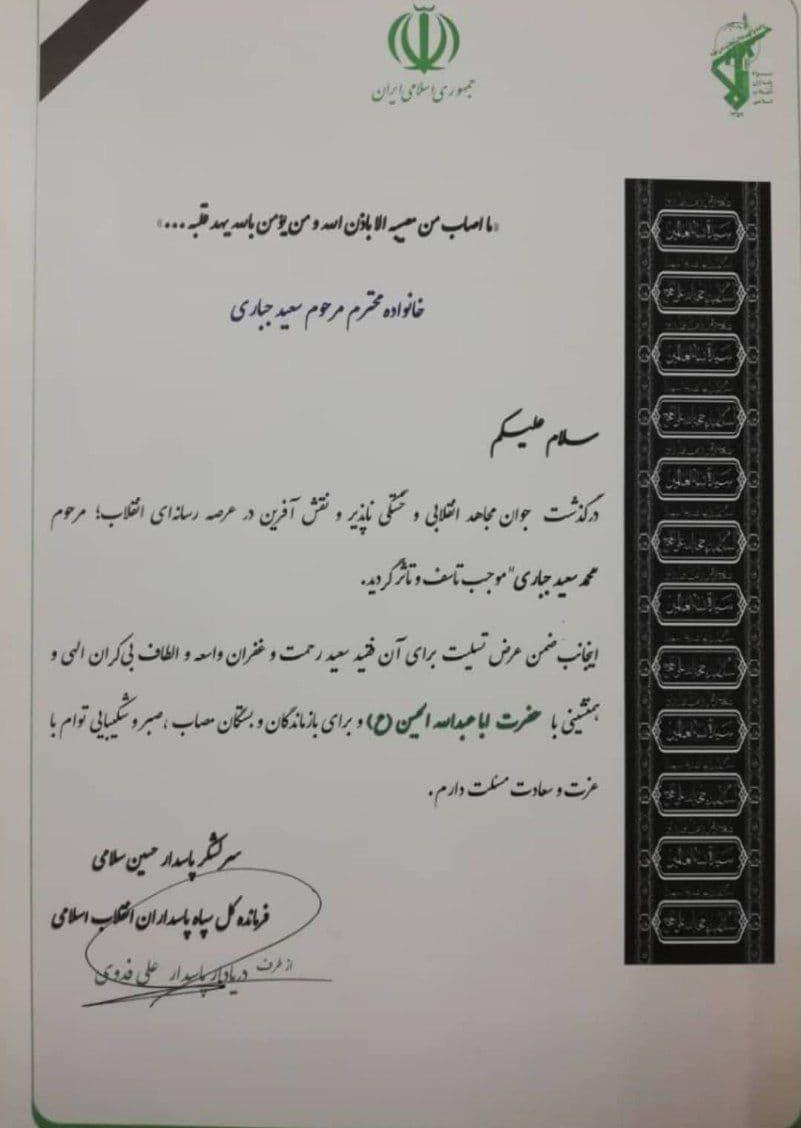 جمهوری اسلامی ایران
«ما اصاب من مصیبه الا باذن الله و من یؤمن بالله یهد قلبه ...»
خانواده محترم مرحوم سعید جباری
سلام علیکم
درگذشت جوان مجاهد انقلابی و خستگی ناپذیر و نقش آفرین در عرصه رسانه‌ای انقلاب؛ مرحوم
محمد سعید جباری" موجب تاسف و تاثر گردید.
اینجانب ضمن عرض تسلیت برای آن فقید سعید رحمت و غفران واسعه و الطاف بی‌کران الهی و
همنشینی با حضرت ابا عبدالله الحسین (ع) و برای بازماندگان و بستگان مصاب ،صبر و شکیبایی توام با
عزت و سعادت مسئلت دارم.
سرلشکر پاسدار حسین سلامی
فرمانده کل سپاه پاسداران انقلاب اسلامی
از طرف دریادار پاسدار علی فدوی